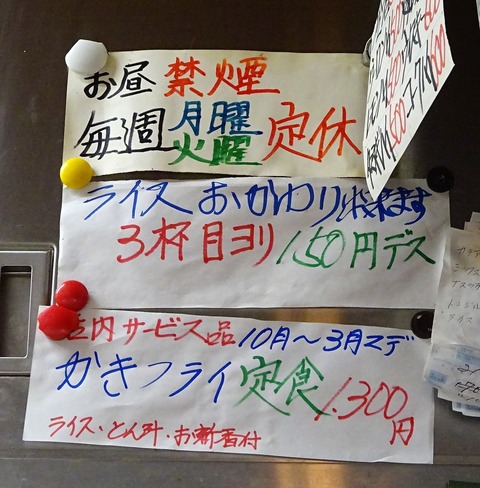 お昼 禁煙
毎週 月曜 火曜 定休
ライス おかわり出来ます
3杯目ヨリ 150円デス
店内サービス品 10月～3月マデ
かきフライ定食 1.300円
ライス・とん汁・お新香付